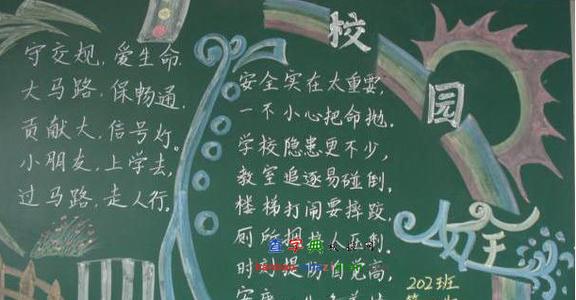 守交规,爱生命.
大马路,保畅通.
贡献大,信号灯。
小朋友,上学去,
过马路,走人行。
校园
安全
安全实在太重要,
一不小心把命抛.
学校隐患更不少,
教室追逐易碰倒.
楼梯打闹要摔跤,
厕所拥挤人
时刻提 自觉高,
查字典
202班